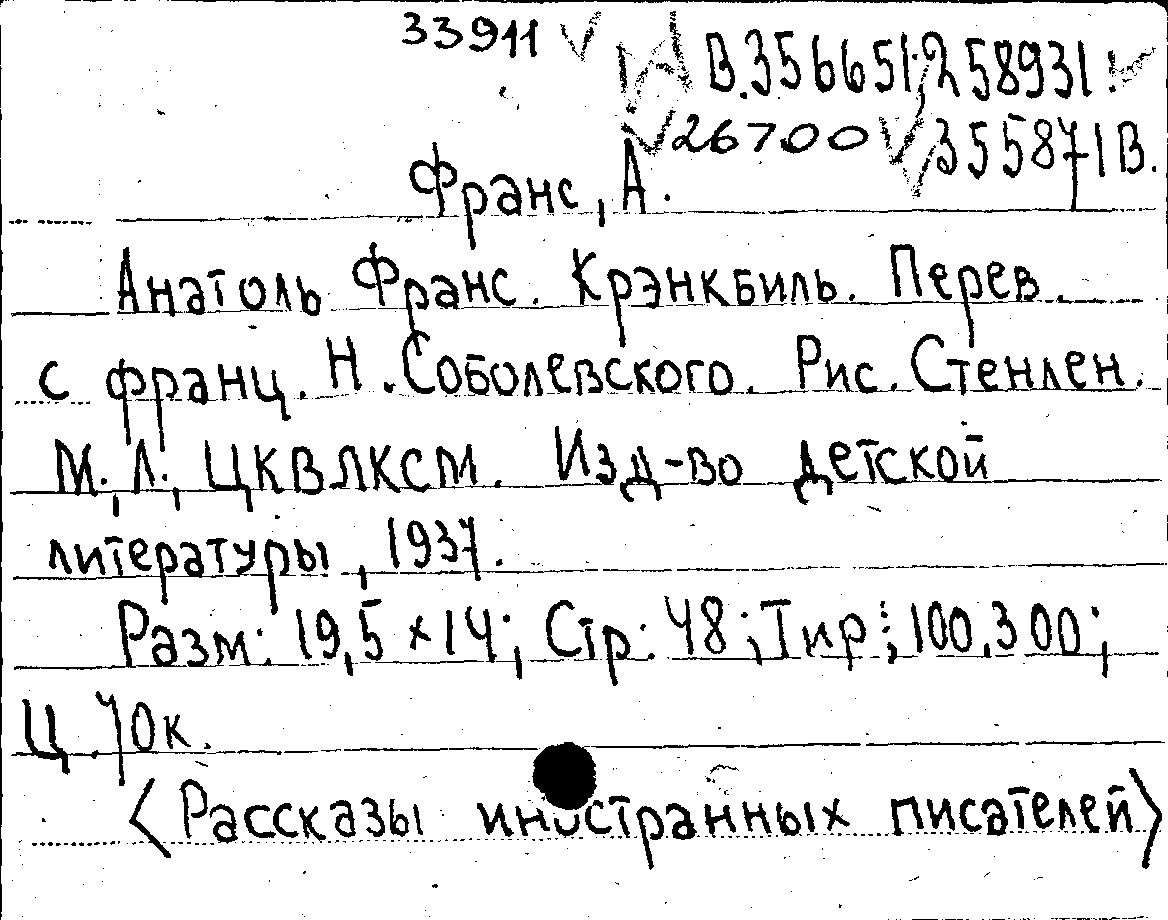 33911 В.356651; 258931.
26700 355871В.
Франс, А.
Анатоль Франс. Крэнкбиль. Перев.
с франц. Н. Соболевского. Рис. Стенлен.
М.,Л., ЦКВЛКСМ. Изд-во детской
литературы, 1937.
Разм: 19,5 × 14; Стр: 48; Тир: 100.300;
Ц. 70к.
<Рассказы иностранных писателей>